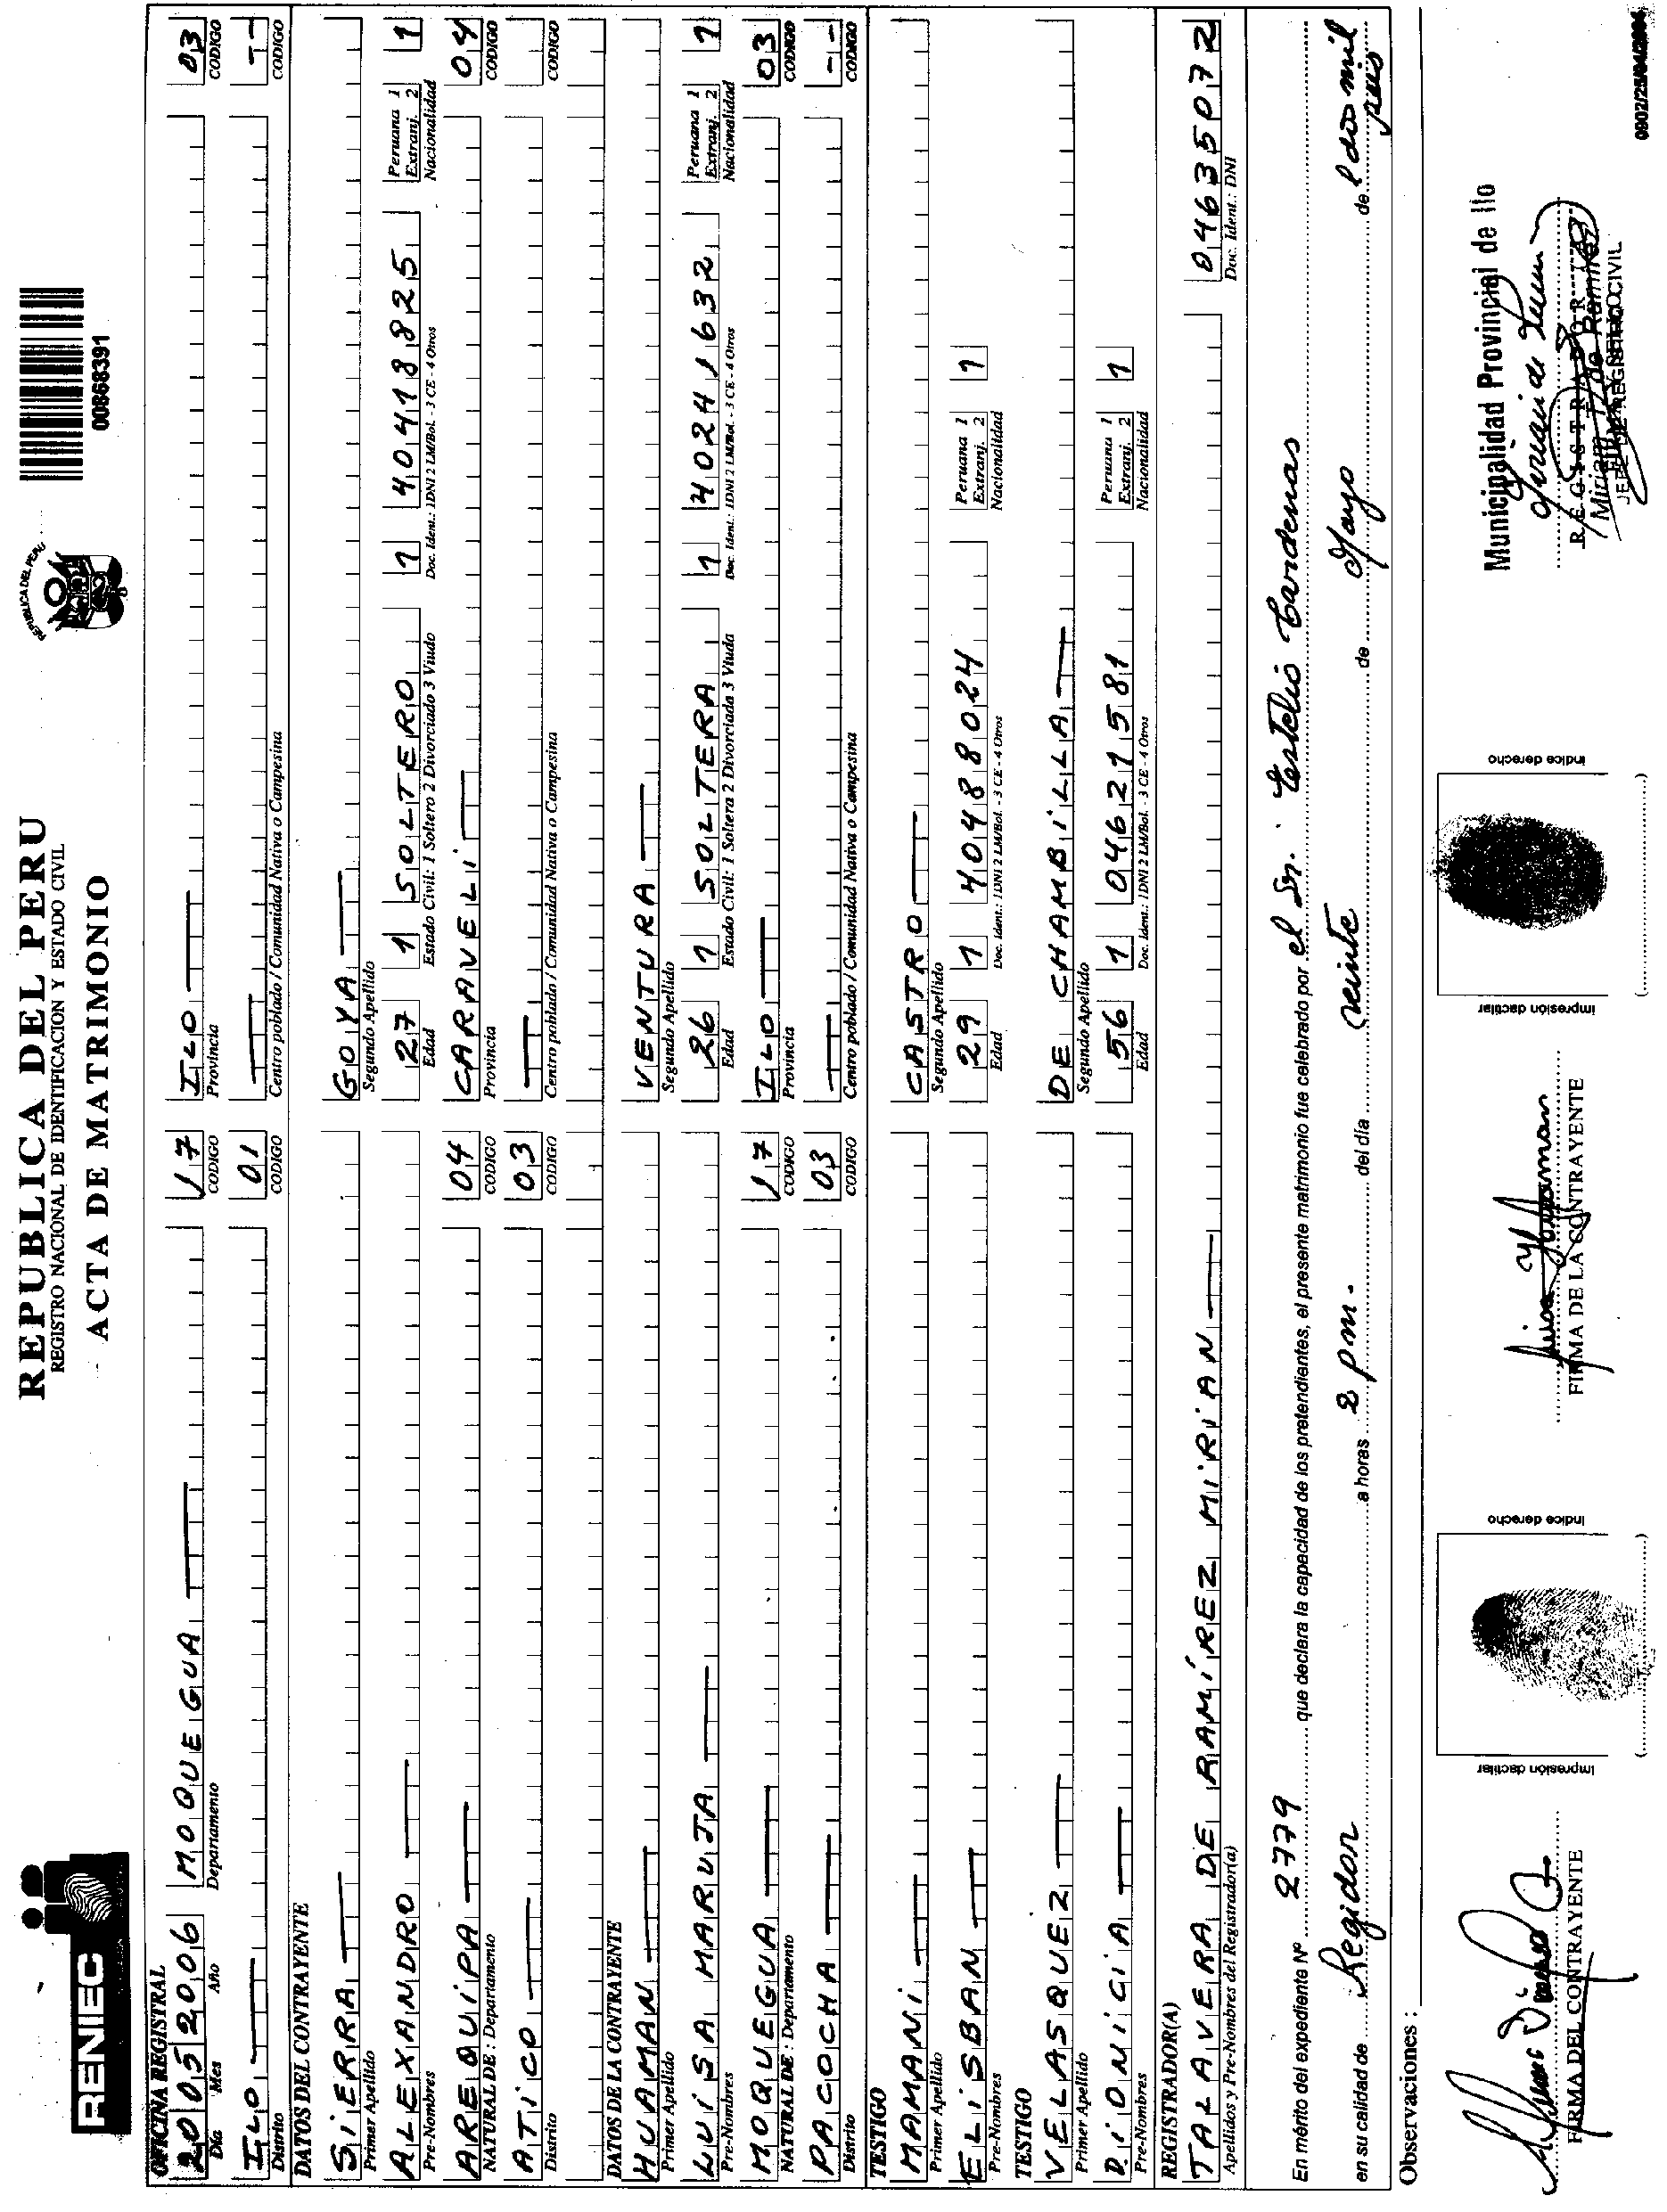 RENIEC
REPUBLICA DEL PERU
REGISTRO NACIONAL DE IDENTIFICACION Y ESTADO CIVIL
ACTA DE MATRIMONIO
REPUBLICA DEL PERU
00868391
OFICINA REGISTRAL
20 05 2006 MOQUEGUA 17 ILO 03
Día Mes Año Departamento CODIGO Provincia CODIGO
ILO 01 --
Distrito CODIGO Centro poblado / Comunidad Nativa o Campesina CODIGO
DATOS DEL CONTRAYENTE
SIERRA GOYA
Primer Apellido Segundo Apellido
ALEXANDRO 27 1 SOLTERO 1 40418825 Peruana 1 Extranj. 2 1
Pre-Nombres Edad Estado Civil: 1 Soltero 2 Divorciado 3 Viudo Doc. Ident.: 1DNI 2 LM/Bol. - 3 CE - 4 Otros Nacionalidad
AREQUIPA 04 CARAVELI 04
NATURAL DE : Departamento CODIGO Provincia CODIGO
ATICO 03
Distrito CODIGO Centro poblado / Comunidad Nativa o Campesina CODIGO
DATOS DE LA CONTRAYENTE
HUAMAN VENTURA
Primer Apellido Segundo Apellido
LUISA MARUJA 26 1 SOLTERA 1 40241632 Peruana 1 Extranj. 2 1
Pre-Nombres Edad Estado Civil: 1 Soltera 2 Divorciada 3 Viuda Doc. Ident.: 1DNI 2 LM/Bol. - 3 CE - 4 Otros Nacionalidad
MOQUEGUA 17 ILO 03
NATURAL DE : Departamento CODIGO Provincia CODIGO
PACOCHA 03 --
Distrito CODIGO Centro poblado / Comunidad Nativa o Campesina CODIGO
TESTIGO
MAMANI CASTRO
Primer Apellido Segundo Apellido
ELISBAN 29 1 40488024 Peruana 1 Extranj. 2 1
Pre-Nombres Edad Doc. Ident.: 1DNI 2 LM/Bol. - 3 CE - 4 Otros Nacionalidad
TESTIGO
VELASQUEZ DE CHAMBILLA
Primer Apellido Segundo Apellido
DIONICIA 56 1 04621581 Peruana 1 Extranj. 2 1
Pre-Nombres Edad Doc. Ident.: 1DNI 2 LM/Bol. - 3 CE - 4 Otros Nacionalidad
REGISTRADOR(A)
TALAVERA DE RAMÍREZ MIRIAN 04635072
Apellidos y Pre-Nombres del Registrador(a) Doc. Ident.: DNI
En mérito del expediente Nº 2779 que declara la capacidad de los pretendientes, el presente matrimonio fue celebrado por el Sr. Estelio Cardenas
en su calidad de Regidor a horas 2 pm. del día veinte de Mayo de l dos mil seis
Observaciones :
FIRMA DEL CONTRAYENTE
Impresión dactilar
Indice derecho
Luisa Huaman
FIRMA DE LA CONTRAYENTE
Impresión dactilar
Indice derecho
Municipalidad Provincial de Ilo
REGISTRADOR
Miriam T. de Ramirez
JEFE DE REGISTRO CIVIL